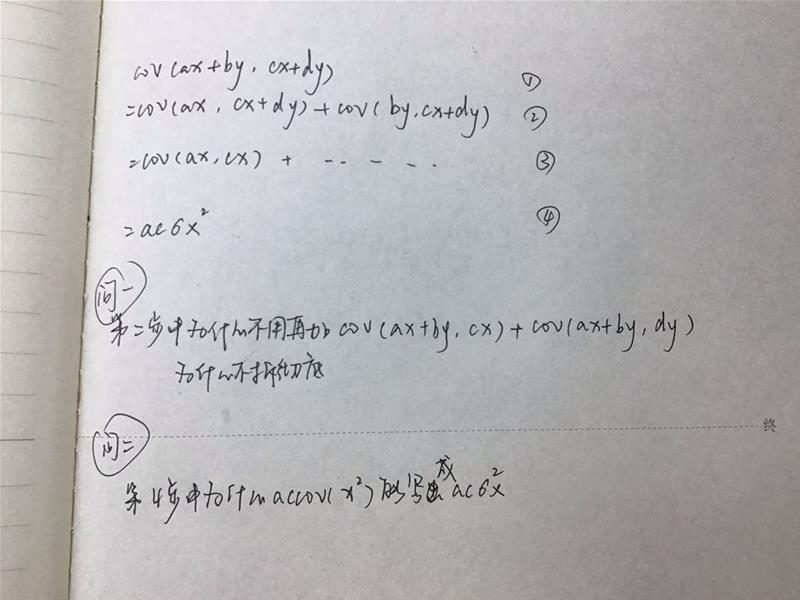 cov(ax+by, cx+dy) ①
=cov(ax, cx+dy)+cov(by,cx+dy) ②
=cov(ax,cx) + ..... ③
=acσx² ④
问一
第二步中为什么不用再加 cov(ax+by, cx)+cov(ax+by, dy)
为什么不拆彻底
终
问二
第4步中为什么accov(x²)能写成acσx²